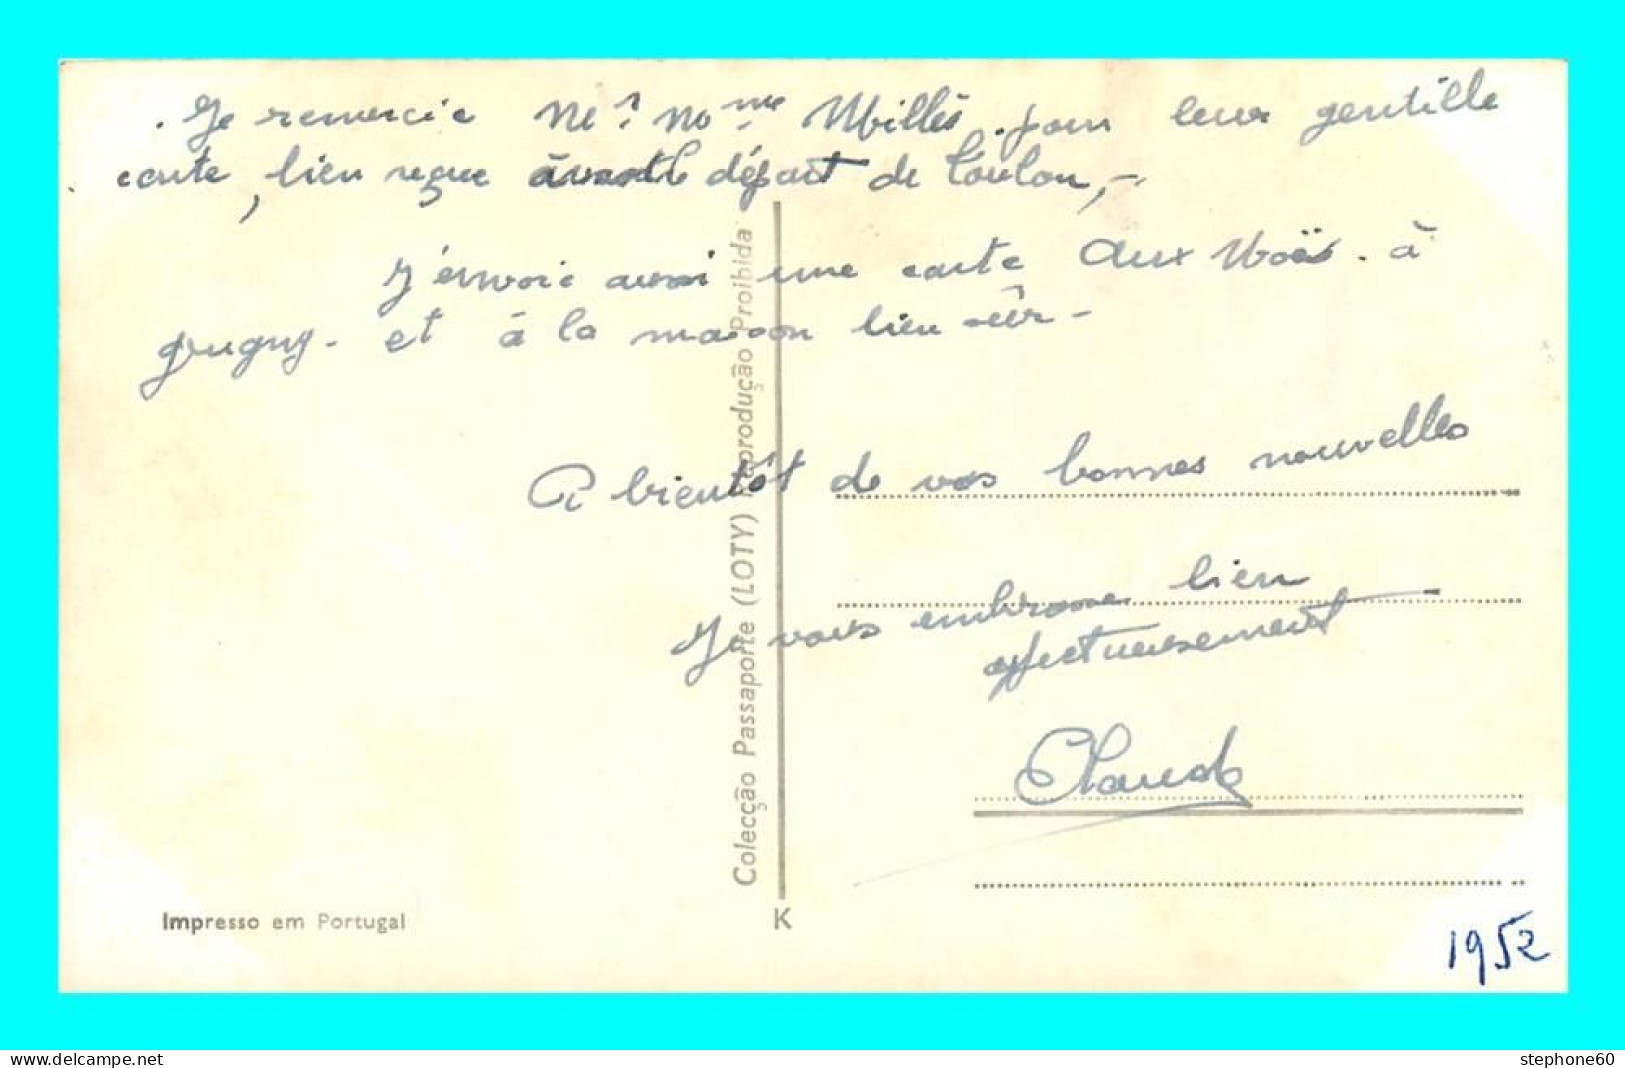 Je remercie Mr. Mme Millès. pour leur gentille
carte, bien reçue avant le départ de Toulon, -
J'envoie aussi une carte aux à
et à la maison bien sûr -
A bientôt de vos bonnes nouvelles
Je vous embrasse bien
affectueusement
Claude
Colecção Passaporte (LOTY) Reprodução Proibida
Impresso em Portugal
K
1952
www.delcampe.net
stephone60